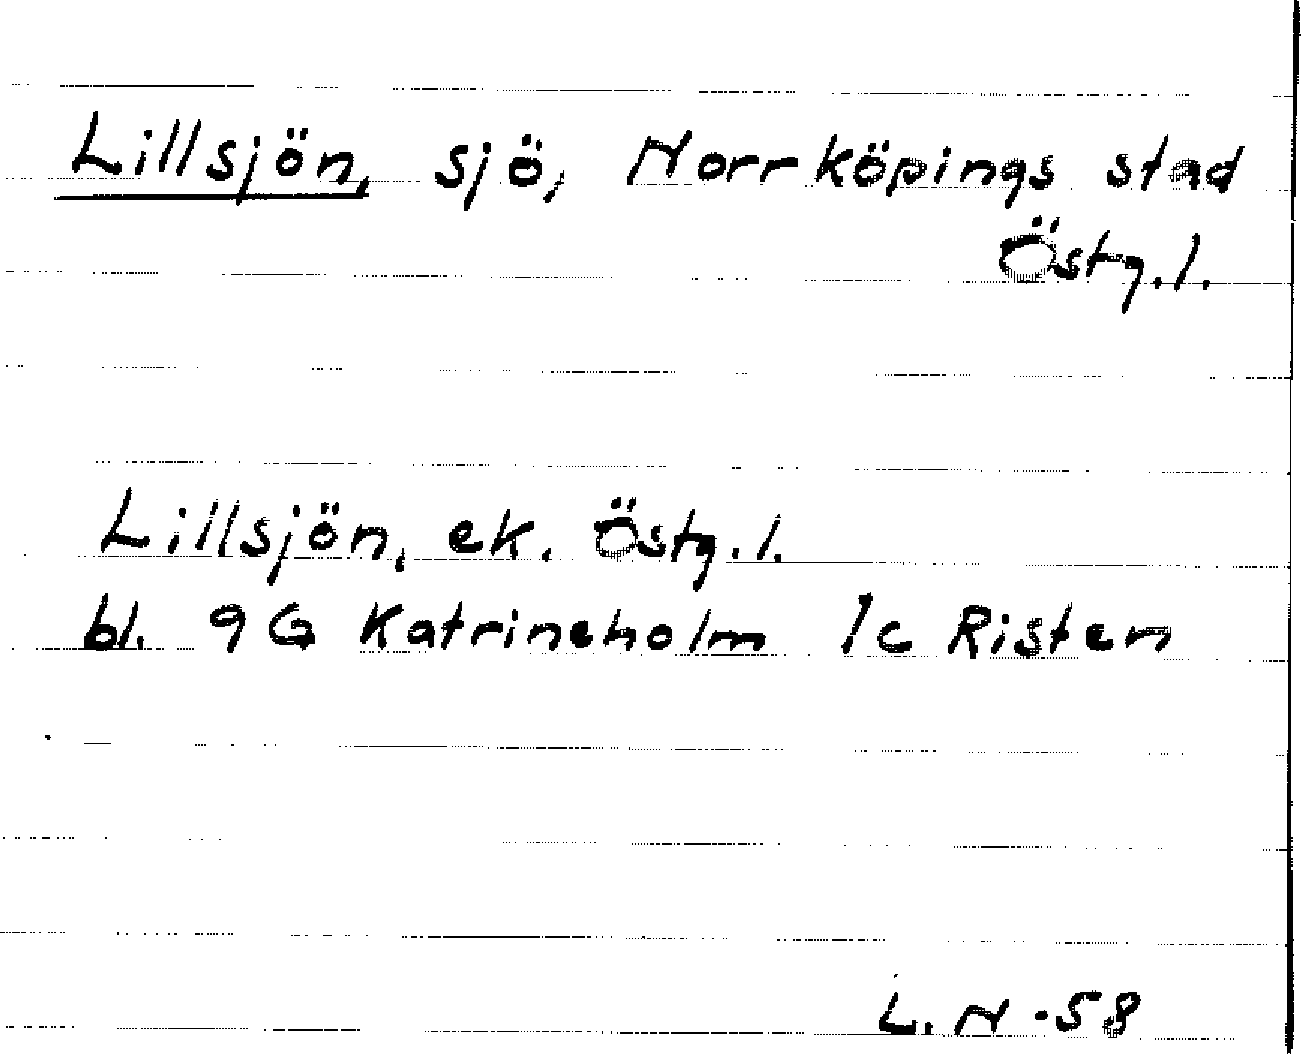 Lillsjön, sjö, Norrköpings stad
Östg.l.
Lillsjön, ek. Östg.l.
bl. 9G Katrineholm 1c Risten
L. N -58